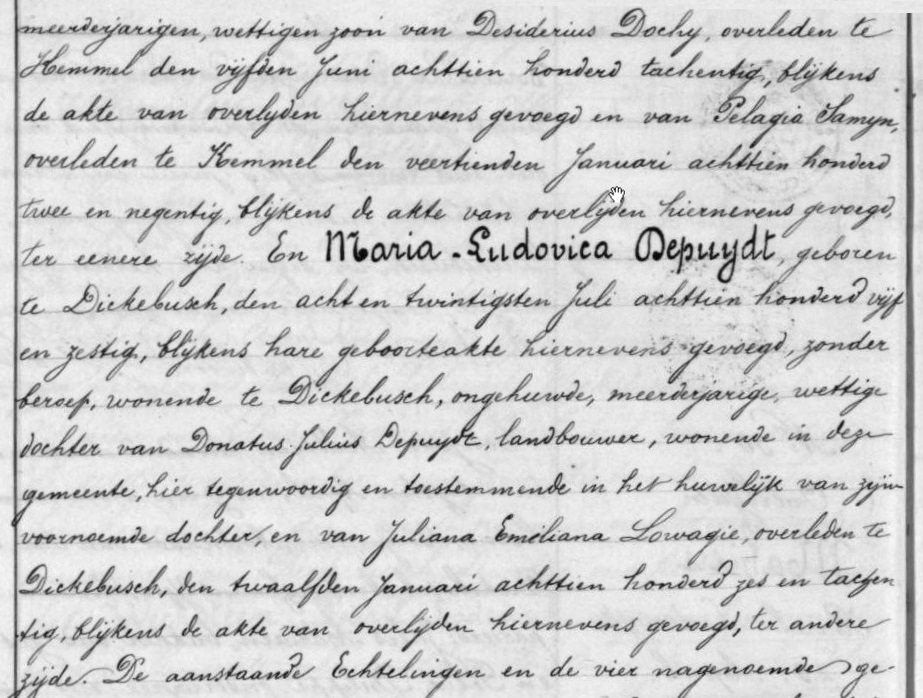 meerderjarigen, wettigen zoon van Desiderius Dochy, overleden te
Kemmel den vijfden Juni achttien honderd tachentig, blijkens
de akte van overlyden hiernevens gevoegd en van Pelagia Samyn,
overleden te Kemmel den veertienden Januari achttien honderd
twee en negentig, blijkens de akte van overlijden hiernevens gevoegd,
ter eenere zijde. En Maria-Ludovica Depuydt, geboren
te Dickebusch, den acht en twintigsten Juli achttien honderd vijf
en zestig, blijkens hare geboorteakte hiernevens gevoegd, zonder
beroep, wonende te Dickebusch, ongehuwde, meerderjarige, wettige
dochter van Donatus Julius Depuydt, landbouwer, wonende in deze
gemeente, hier tegenwoordig en toestemmende in het huwelijk van zijne
voornoemde dochter, en van Juliana Emeliana Lowagie, overleden te
Dickebusch, den twaalfden Januari achttien honderd zes en tachen
tig, blijkens de akte van overlijden hiernevens gevoegd, ter andere
zijde. De aanstaande Echtelingen en de vier nagenoemde ge-